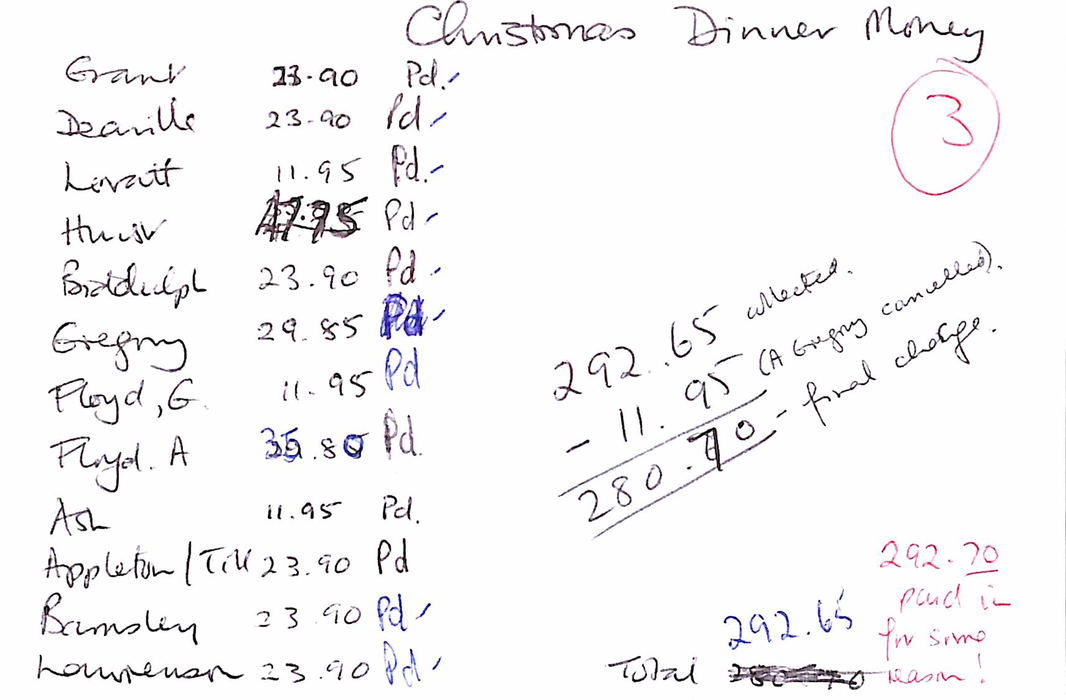 Christmas Dinner Money
3
Grant 23.90 Pd.
Deaville 23.90 Pd
Lovatt 11.95 Pd.
Pd
Biddulph 23.90 Pd
Gregory 29.85 Pd
Floyd, G. 11.95 Pd
Floyd. A 35.80 Pd.
Ash 11.95 Pd.
Appleton / Till 23.90 Pd
Barnsley 23.90 Pd
23.90 Pd
292.65 collected.
- 11.95 (A Gregory cancelled).
280.70 - final charge.
292.65
Total
292.70
paid in
for some
reason!